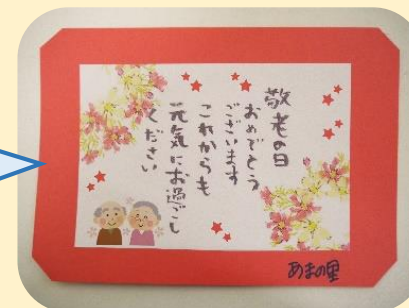 敬老の日
おめでとう
ございます
これからも
元気にお過ごし
ください
あまの里